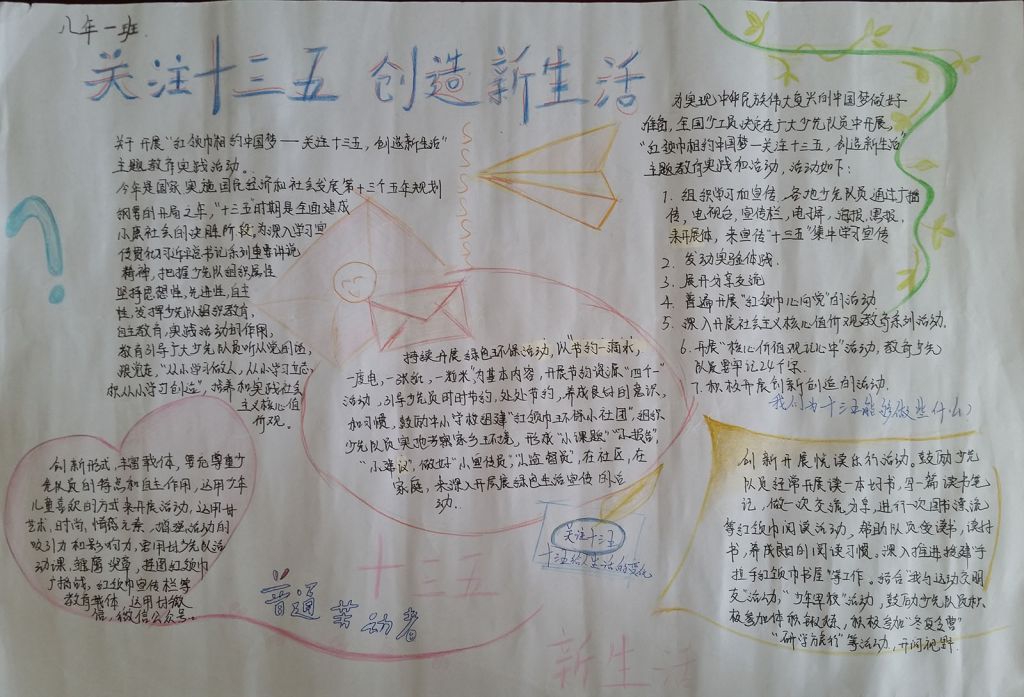 八年一班
关注十三五 创造新生活
关于开展“红领巾相约中国梦——关注十三五，创造新生活”
主题教育实践活动。
今年是国家实施国民经济和社会发展第十三个五年规划
纲要的开局之年，“十三五”时期是全面建成
小康社会的决胜阶段，为深入学习宣
传贯彻习近平总书记系列重要讲话
精神，把握少先队组织属性
坚持思想性，先进性，自主
性，发挥少先队组织教育，
自主教育，实践活动的作用，
教育引导广大少先队员听从党的话，
跟党走，“从小学习做人，从小学习立志，
从小学习创造”，培养和实践社会
主义核心值
价观。
为实现中华民族伟大复兴的中国梦做好
准备，全国少工委决定在广大少先队员中开展，
“红领巾相约中国梦—关注十三五，创造新生活”
主题教育实践和活动，活动如下：
1. 组织学习加宣传，各地少先队员通过广播
传，电视台，宣传栏，电子屏，海报，黑报，
来开展体，来宣传“十三五”集中学习宣传
2. 发动实验体践.
3. 展开分享交流
4. 普遍开展“红领巾心向党”的活动
5. 深入开展社会主义核心值价观教育系列活动.
6. 开展“核心价值观记心中”活动，教育少先
队员要牢记24个字.
7. 积极开展创新创造的活动.
我们为十三五能够做些什么？
持续开展绿色环保活动，以“节约一滴水，
一度电，一张纸，一粒米”为基本内容，开展节约资源“四个一”
活动，引导少先队员时时节约，处处节约，养成良好的意识，
和习惯，鼓励中小学校组建“红领巾环保小社团”，组织
少先队员实地考察家乡环境，形成“小课题”“小报告”，
“小建议”，做好“小宣传员”，“小监督员”，在社区，在
家庭，来深入开展展绿色生活宣传的活
动.
创新形式，丰富载体，要充尊重少
先队员的特点和自主作用，运用少年
儿童喜欢的方式来开展活动，运用好
艺术，时尚，情感元素，增强活动的
吸引力和影响力，要用好少先队活
动课，雏鹰奖章，鼓号红领巾
广播站，红领巾宣传栏等
教育载体，运用好微
信，微信公众号.
创新开展悦读乐行活动。鼓励少先
队员经常开展读一本好书，写一篇读书笔
记，做一次交流分享，进行一次图书漂流
等红领巾阅读活动，帮助队员爱读书，读好
书，养成良好的阅读习惯。深入推进搭建“手
拉手红领巾书屋”等工作。结合“我行运动交朋
友”活动，“少年军校”活动，鼓励少先队员积
极参加体育锻炼，积极参加“冬夏令营”
“研学旅行”等活动，开阔视野.
关注十三五
十三五给人生活的变化
十三五
普通劳动者
新生活